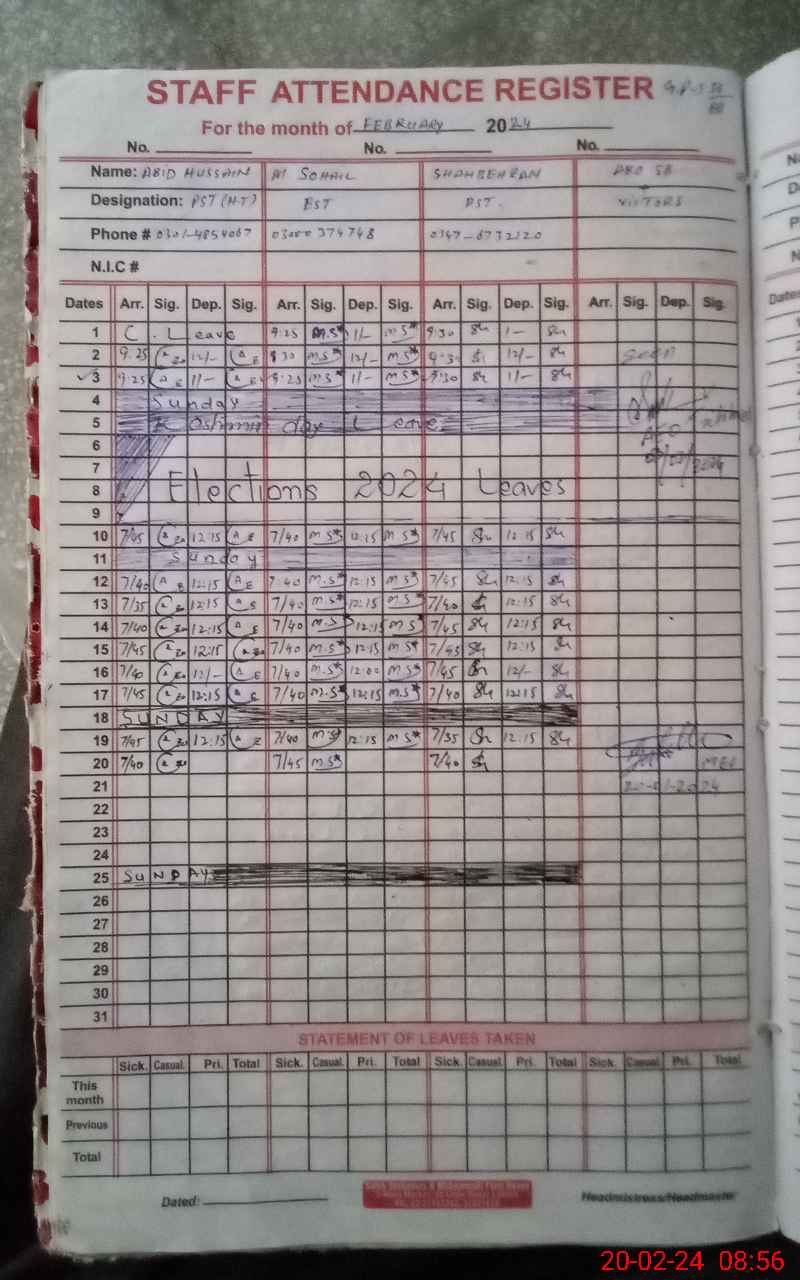 STAFF ATTENDANCE REGISTER
For the month of FEBRUARY 2024
No. No. No.
Name: ABID HUSSAIN M SOHAIL SHAHBEHRAN AEO SB
Designation: PST (H-T) EST PST. VISITORS
Phone # 0301-4854067 0347-6732120
N.I.C #
Dates Arr. Sig. Dep. Sig. Arr. Sig. Dep. Sig. Arr. Sig. Dep. Sig. Arr. Sig. Dep. Sig.
1 C. Leave 9:25 M.S 11/- 9:30 Sh 1- Sh
2 9.25 12/- 9:30 M.S 12/- M.S 9:3 12/- Sh Seen
3 9:25 11/- 9:25 M.S 11/- M.S 9:30 Sh 11/- Sh
4 Sunday
5 Kashmir day Leave
6
7
8 Elections 2024 Leaves
9
10 7/45 12:15 7/40 M.S 12:15 M.S 7/45 Sh 12:15 Sh
11 Sunday
12 7/40 12:15 7:40 M.S 12:15 M.S 7/45 Sh 12:15 Sh
13 7/35 12:15 7/40 M.S 12:15 M.S 7/40 12:15 Sh
14 7/40 12:15 7/40 M.S 12:15 M.S 7/45 Sh 12:15 Sh
15 7/45 12:15 7/40 M.S 12:15 M.S 7/45 Sh 12:15 Sh
16 7/40 12/- 7/40 M.S 12:00 M.S 7/45 Sh 12/- Sh
17 7/45 12:15 7/40 M.S 12:15 M.S 7/40 Sh 12:15 Sh
18 SUNDAY
19 7/45 12:15 7/40 M.S 12:15 M.S 7/35 Sh 12:15 Sh
20 7/40 7/45 M.S 7/40 MEA
21
22
23
24
25 SUNDAY
26
27
28
29
30
31
STATEMENT OF LEAVES TAKEN
Sick. Casual. Pri. Total Sick. Casual. Pri. Total Sick. Casual. Pri. Total Sick. Casual. Pri. Total
This month
Previous
Total
Dated: Headmistress/Headmaster
20-02-24 08:56